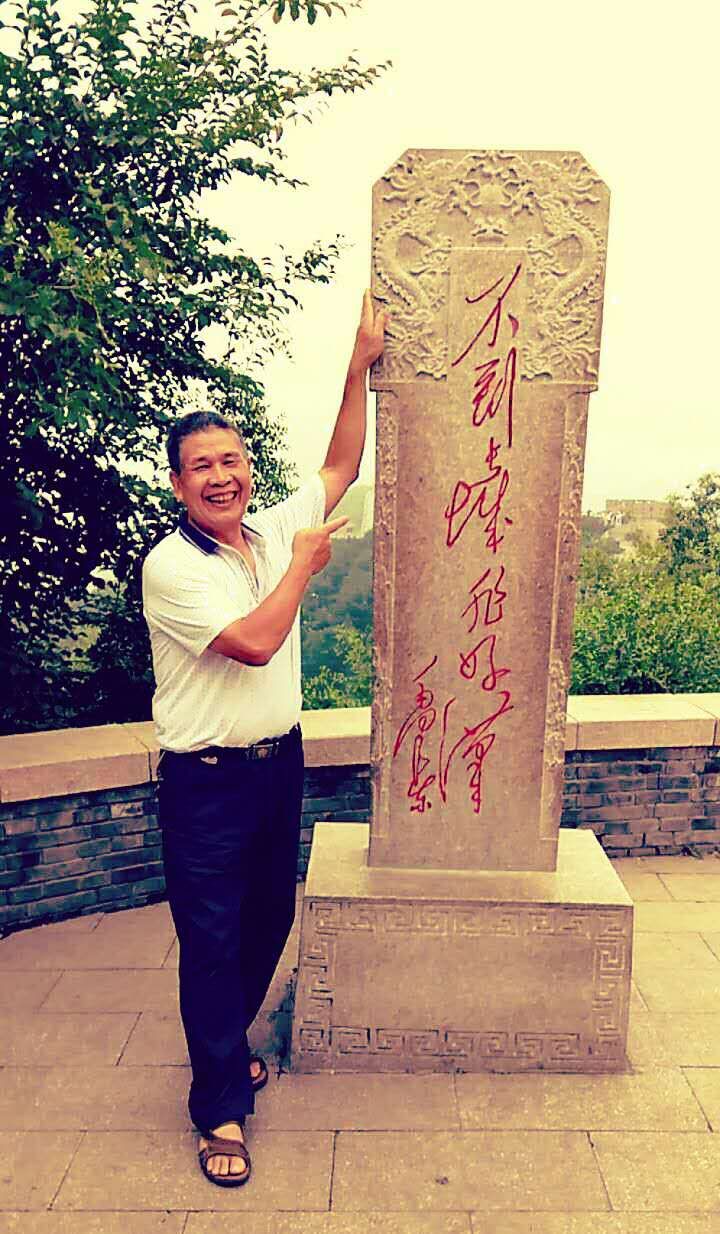 不到长城非好汉
毛泽东